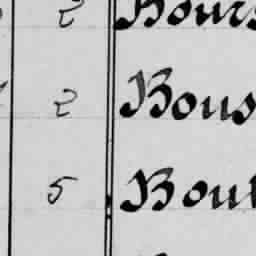 2 Bours
2 Bous
5 Bou